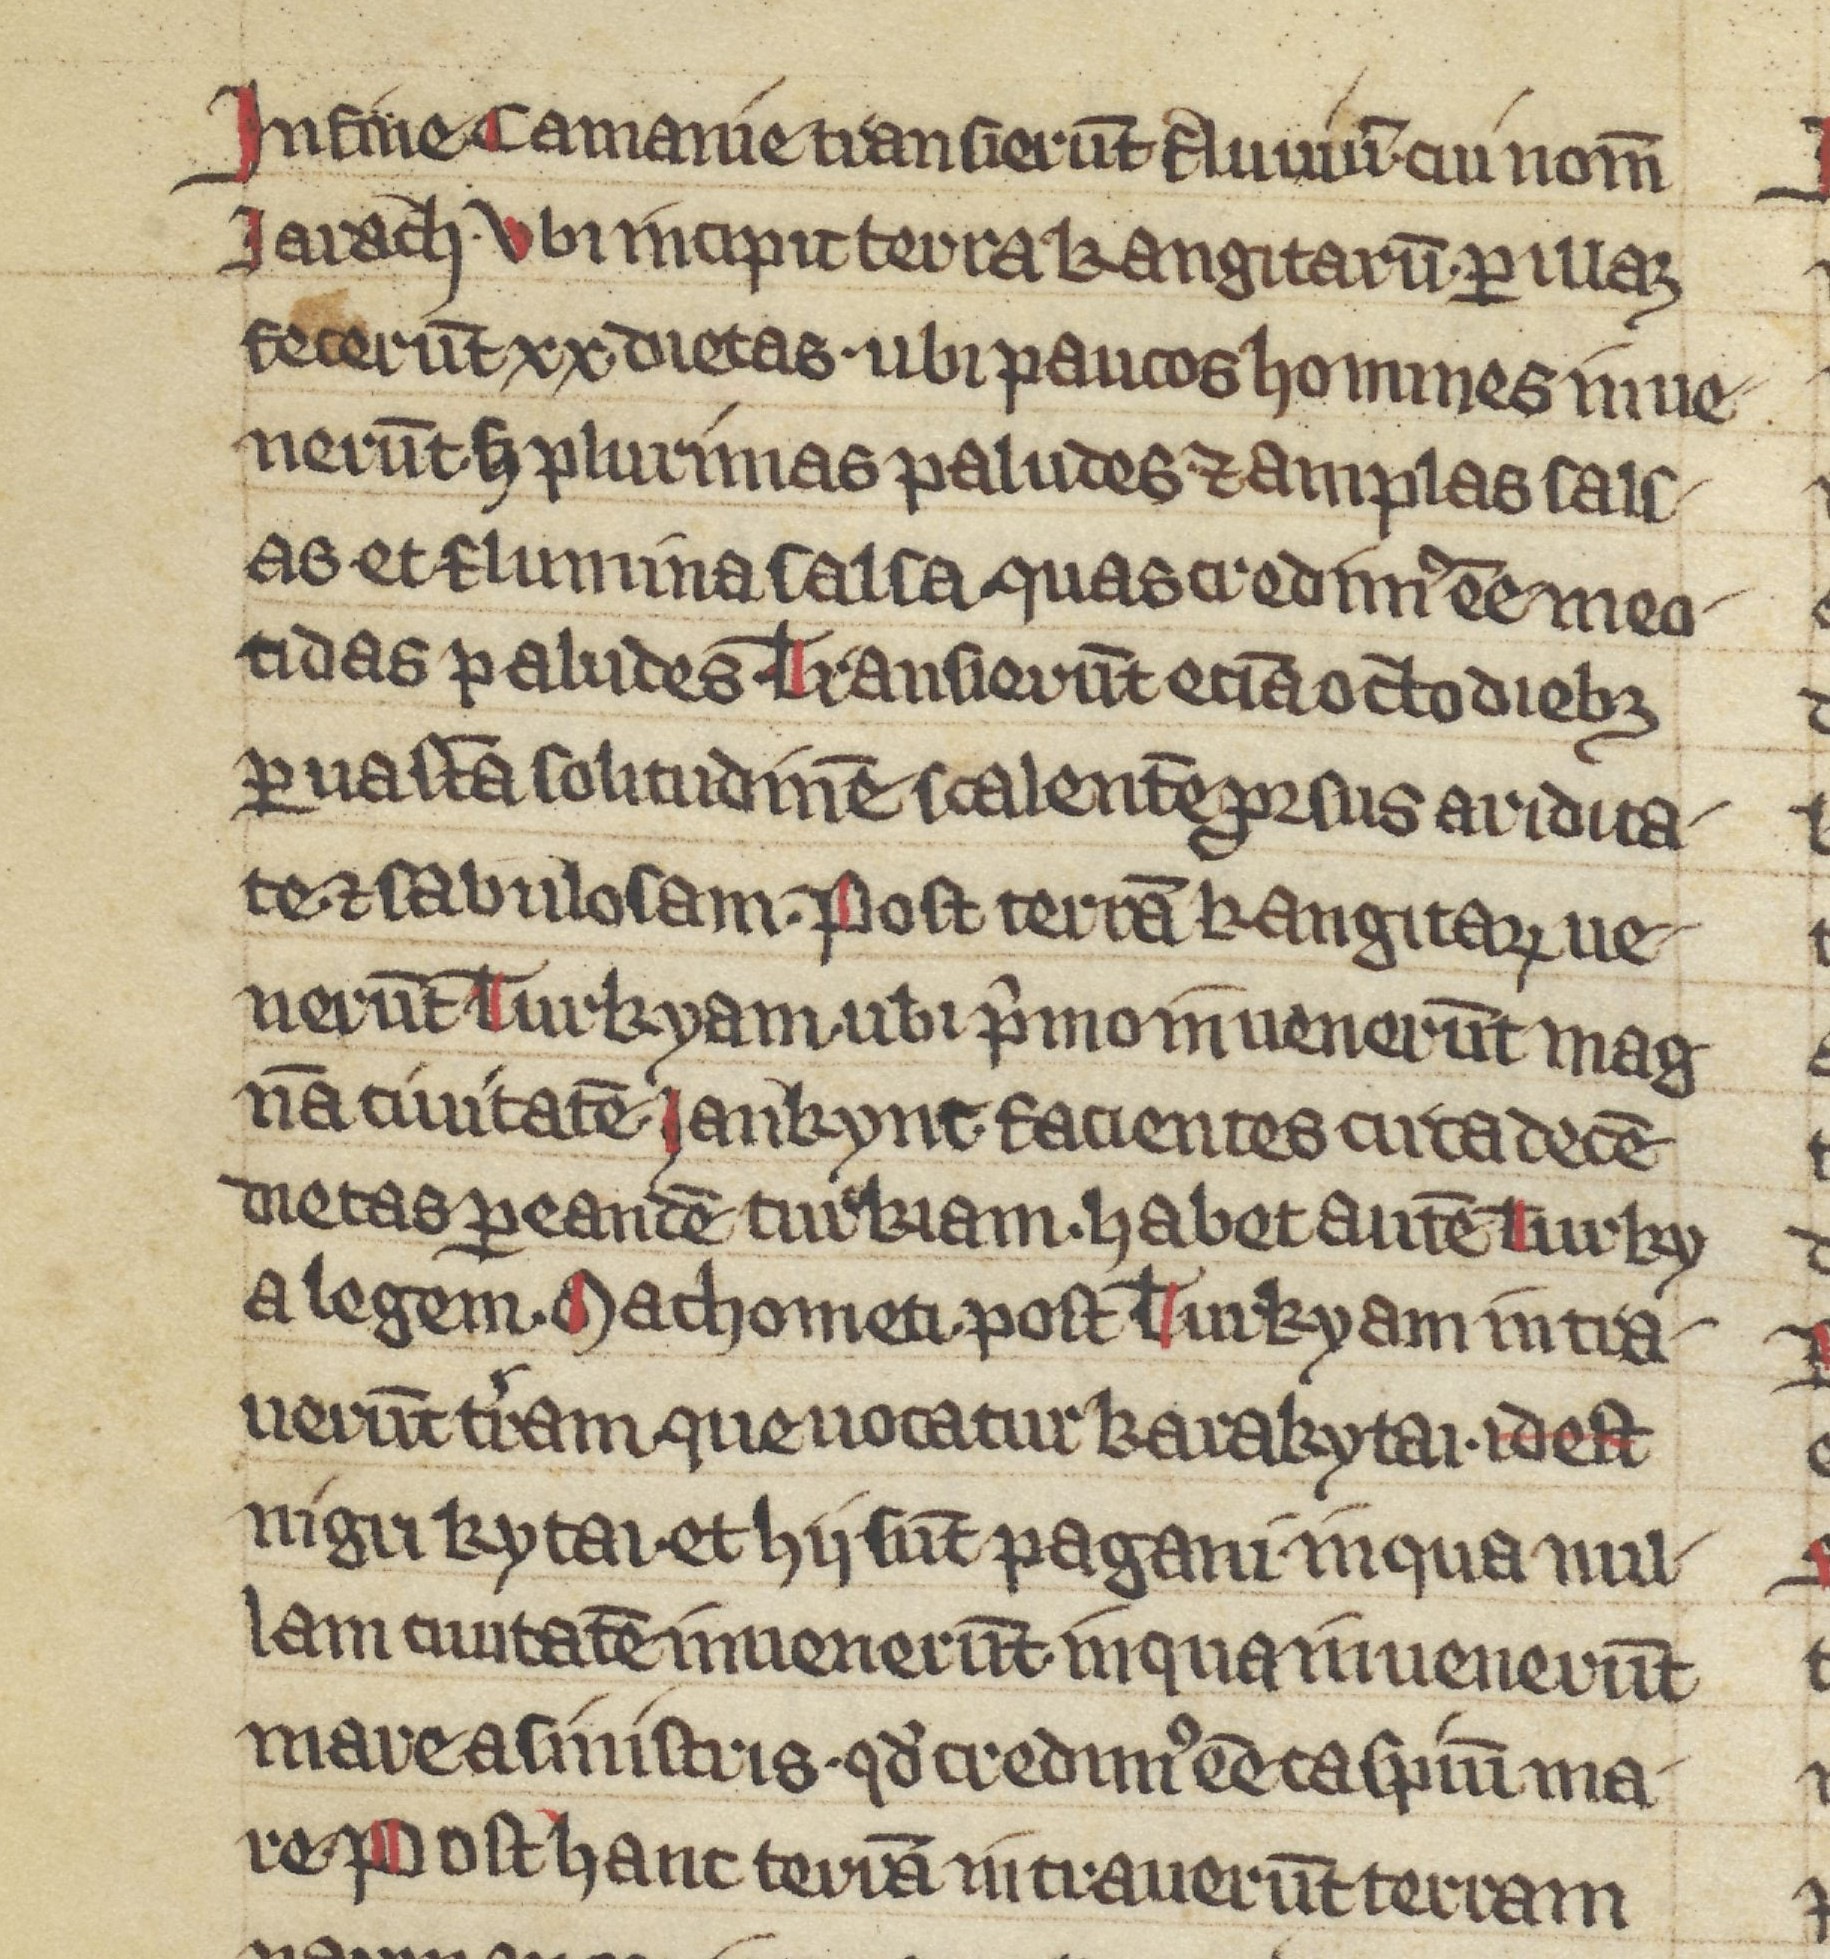 In fine Camanie transierūt fluuiū cui nom̄
Iarach. Vbi incipit terra kangitarū. ꝑ illaꝫ
fecerūt xx dietas. ubi paucos homines inue-
nerūt. sꝫ plurimas paludes ⁊ amplas sals-
as et flumina salsa. quas credimꝰ ēe meo-
tidas paludes. Transierūt eciā octo diebꝫ
ꝑ uastā solitudinē scalentē ꝓrsus aridita-
te ⁊ sabulosam. Post terrā kangitaꝝ ue-
nerūt Turkyam. ubi pͥmo inuenerūt mag
nā ciuitatē Iankynt. facientes circa decē
dietas ꝑ eandē turkiam. habet autē Turky
a legem. Machometi. post Turkyam intra-
uerūt tr̄am. que uocatur karakytai. idest
nigri kytai. et hij sūt pagani. in qua nul-
lam ciuitatē inuenerūt. in qua inuenerūt
mare a sinistris. qd̓ credimꝰ ēe caspiū ma-
re. Post hanc terrā intrauerūt terram